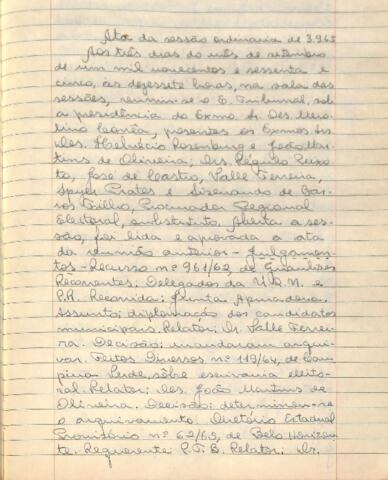 Ata da sessão ordinaria de 3.9.65
Aos três dias do mês de setembro
de um mil novecentos e sessenta e
cinco, às dezessete horas, na sala das
sessões, reuniu-se o E. Tribunal, sob
a presidência do Exmo. Sr. Des.
Corrêa, presentes os Exmos. Srs.
Des. Helvécio Rosenburg e João Mar-
tins de Oliveira; Drs. Régulo Peixo-
to, José de Castro, Valle Ferreira,
Prates e Sizenando de Bar-
ros Filho, Procurador Regional
Eleitoral, substituto. Aberta a ses-
são, foi lida e aprovada a ata
da reunião anterior - Julgamen-
tos - Recurso nº 961/62, de Guanhães
Recorrentes: Delegados da U.D.N. e
P.R. Recorrida: Junta Apuradora.
Assunto: diplomação dos candidatos
municipais. Relator: Dr. Valle Ferrei-
ra. Decisão: mandaram arqui-
var. Feitos Diversos nº 119/64, de Cam-
pina Verde, sôbre escrivania eleito-
ral. Relator: Des. João Martins de
Oliveira. Decisão: determinou-se
o arquivamento. Diretório Estadual
Provisório nº 62/62, de Belo Horizon-
te. Requerente: P.T.B. Relator: Dr.